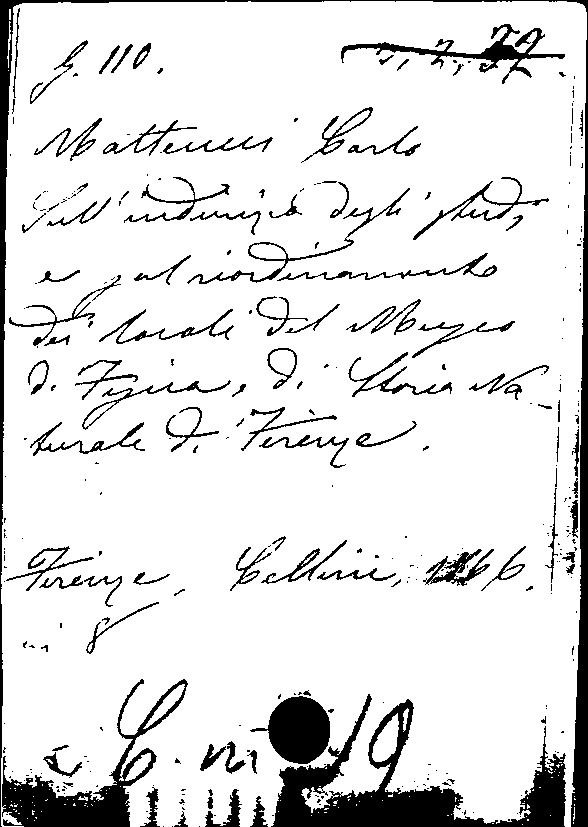 G. 110.
3, 2, 32.
Matteucci Carlo
Sull'indirizzo degli studi,
e sul riordinamento
dei locali del Museo
di Fisica, e di Storia Na-
turale di Firenze.
Firenze, Cellini, 1866.
in 8
C. m 19